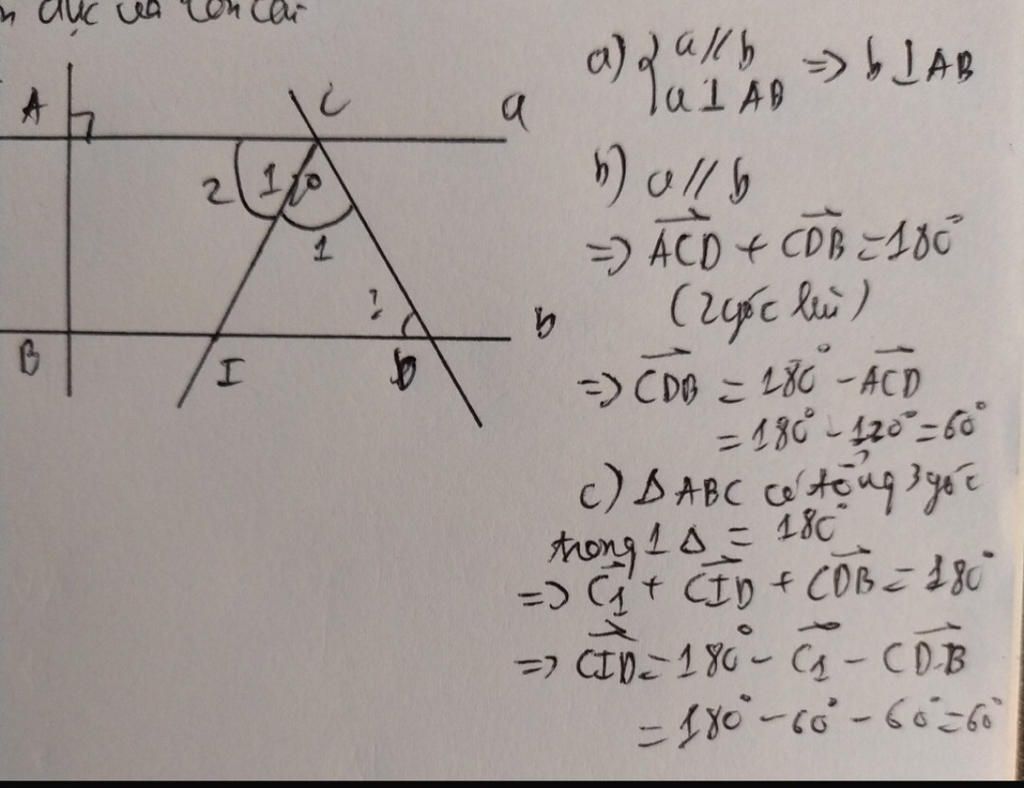 A
C
a
2
120
1
?
B
I
D
b
a) { a // b
a ⊥ AB => b ⊥ AB
b) a // b
=> ACD + CDB = 180°
(2 góc
=> CDB = 180° - ACD
= 180° - 120° = 60°
c) Δ ABC có tổng 3 góc
trong 1 Δ = 180°
=> C1 + CID + CDB = 180°
=> CID = 180° - C1 - CDB
= 180° - 60° - 60° = 60°